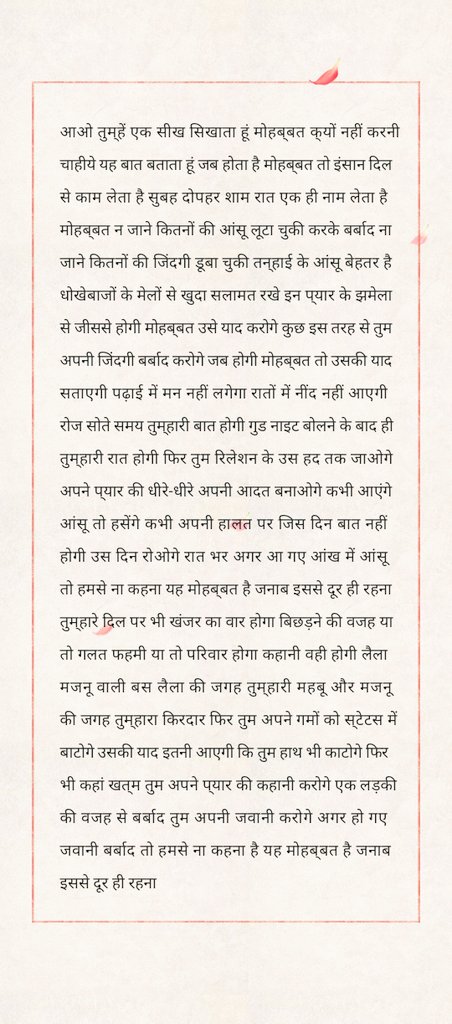 आओ तुम्हें एक सीख सिखाता हूं मोहब्बत क्यों नहीं करनी
चाहीये यह बात बताता हूं जब होता है मोहब्बत तो इंसान दिल
से काम लेता है सुबह दोपहर शाम रात एक ही नाम लेता है
मोहब्बत न जाने कितनों की आंसू लूटा चुकी करके बर्बाद ना
जाने कितनों की जिंदगी डूबा चुकी तन्हाई के आंसू बेहतर है
धोखेबाजों के मेलों से खुदा सलामत रखे इन प्यार के झमेला
से जीससे होगी मोहब्बत उसे याद करोगे कुछ इस तरह से तुम
अपनी जिंदगी बर्बाद करोगे जब होगी मोहब्बत तो उसकी याद
सताएगी पढ़ाई में मन नहीं लगेगा रातों में नींद नहीं आएगी
रोज सोते समय तुम्हारी बात होगी गुड नाइट बोलने के बाद ही
तुम्हारी रात होगी फिर तुम रिलेशन के उस हद तक जाओगे
अपने प्यार की धीरे-धीरे अपनी आदत बनाओगे कभी आएंगे
आंसू तो हसेंगे कभी अपनी हालत पर जिस दिन बात नहीं
होगी उस दिन रोओगे रात भर अगर आ गए आंख में आंसू
तो हमसे ना कहना यह मोहब्बत है जनाब इससे दूर ही रहना
तुम्हारे दिल पर भी खंजर का वार होगा बिछड़ने की वजह या
तो गलत फहमी या तो परिवार होगा कहानी वही होगी लैला
मजनू वाली बस लैला की जगह तुम्हारी महबू और मजनू
की जगह तुम्हारा किरदार फिर तुम अपने गमों को स्टेटस में
बाटोगे उसकी याद इतनी आएगी कि तुम हाथ भी काटोगे फिर
भी कहां खत्म तुम अपने प्यार की कहानी करोगे एक लड़की
की वजह से बर्बाद तुम अपनी जवानी करोगे अगर हो गए
जवानी बर्बाद तो हमसे ना कहना है यह मोहब्बत है जनाब
इससे दूर ही रहना